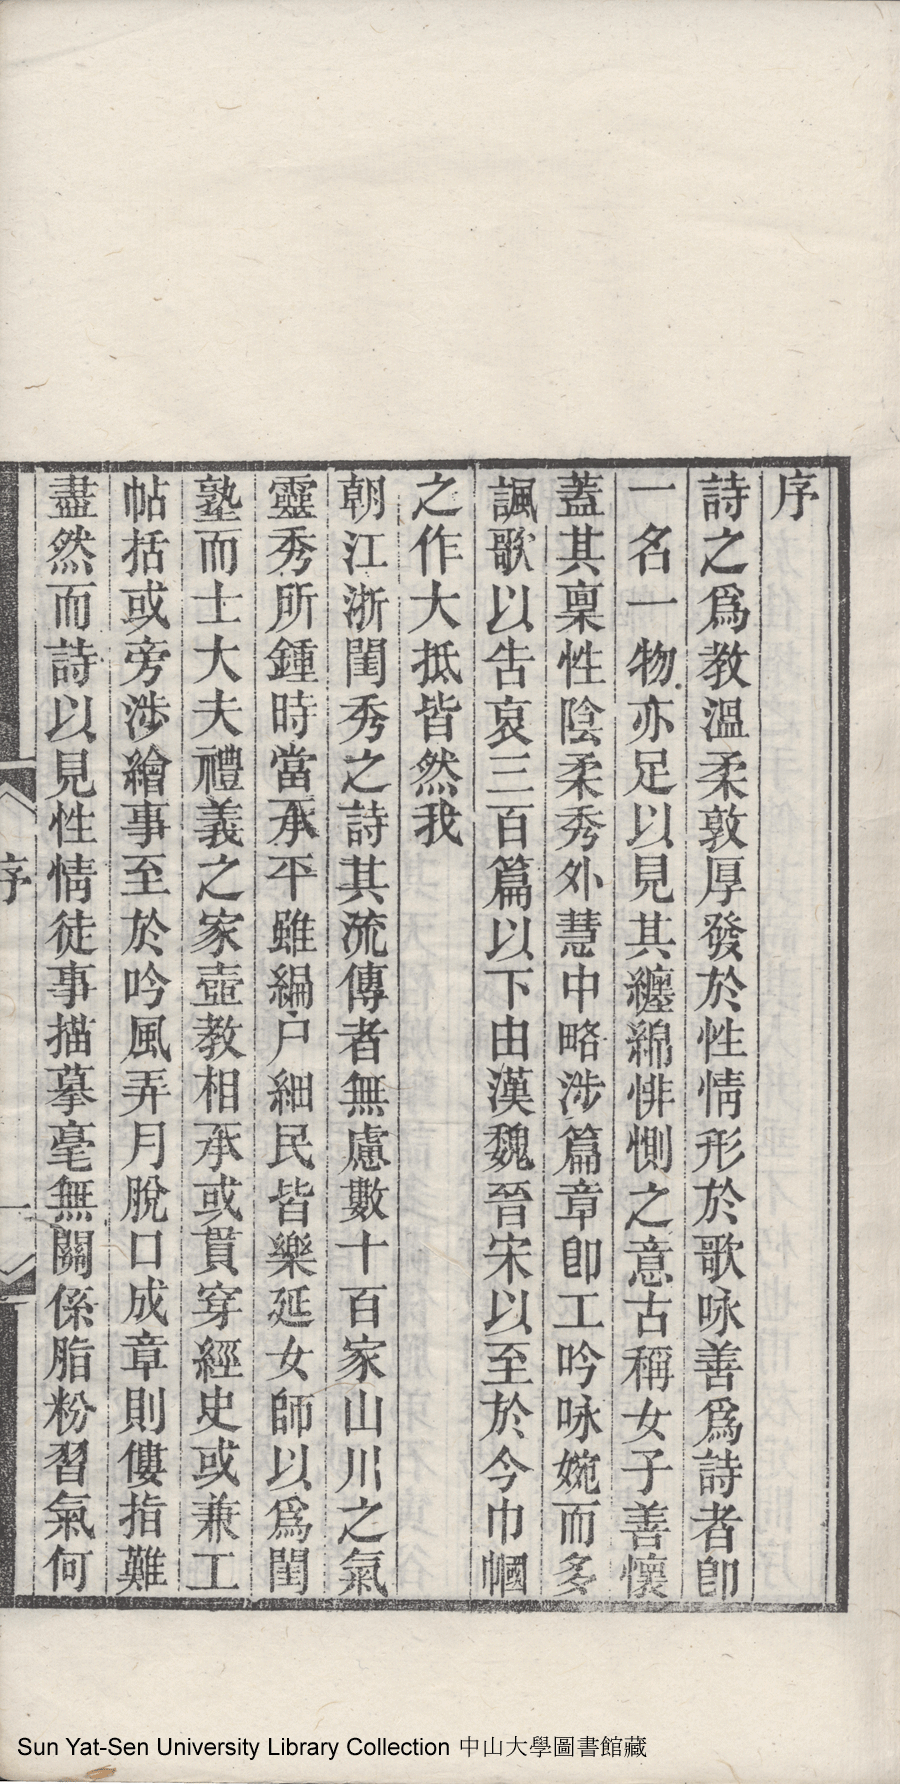 序
詩之爲教溫柔敦厚發於性情形於歌咏善爲詩者卽
一名一物亦足以見其纏綿悱惻之意古稱女子善懷
蓋其稟性陰柔秀外慧中略涉篇章卽工吟咏婉而多
諷歌以吿哀三百篇以下由漢魏晉宋以至於今巾幗
之作大抵皆然我
朝江浙閨秀之詩其流傳者無慮數十百家山川之氣
靈秀所鍾時當承平雖編户細民皆樂延女師以爲閨
塾而士大夫禮義之家壼教相承或貫穿經史或兼工
帖括或旁涉繪事至於吟風弄月脫口成章則僂指難
盡然而詩以見性情徒事描摹毫無關係脂粉習氣何
序
一
Sun Yat-Sen University Library Collection 中山大學圖書館藏